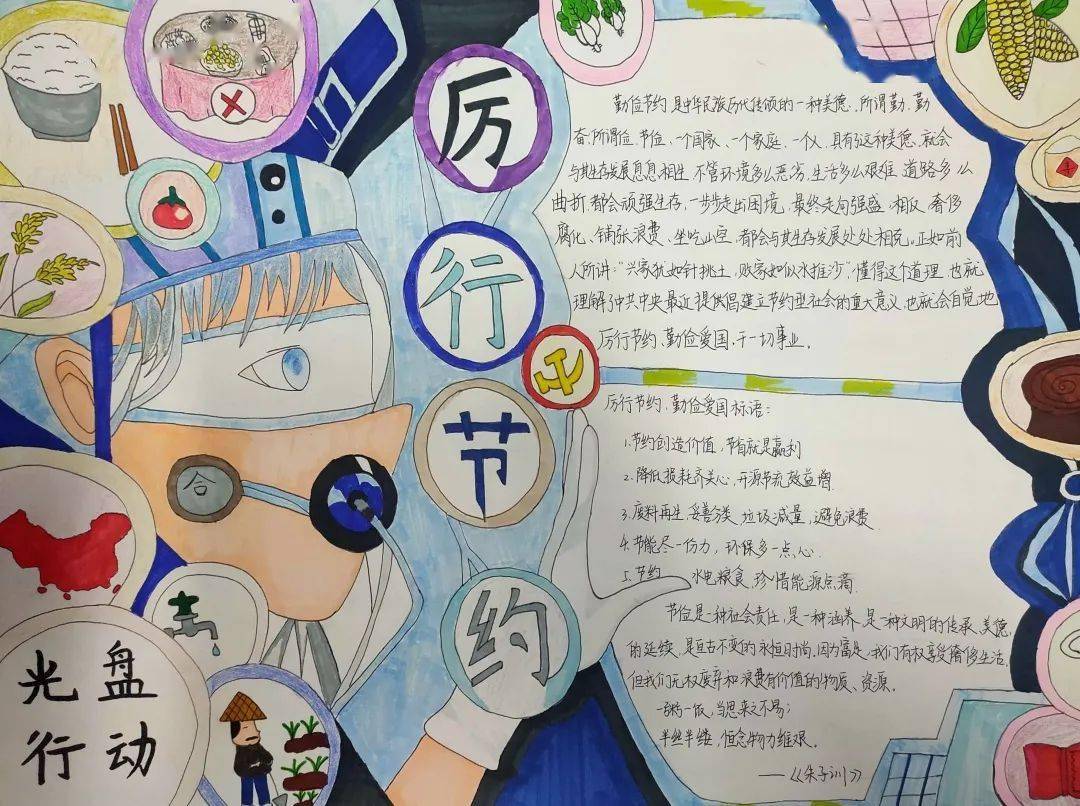 厉
行
节
约
勤俭节约是中华民族历代传颂的一种美德,所谓勤,勤
奋;所谓俭,节俭,一个国家、一个家庭、一个人,具有了这种美德,就会
与其生存发展息息相生,不管环境多么恶劣,生活多么艰难,道路多么
曲折,都会顽强生存,一步步走出困境,最终走向强盛,相反,奢侈
腐化、铺张浪费、坐吃山空,都会与其生存发展处处相克。正如前
人所讲:“兴家犹如针挑土,败家如似水推沙”,懂得这个道理,也就
理解了中共中央最近提倡建立节约型社会的重大意义,也就会自觉地
厉行节约、勤俭爱国,干一切事业。
厉行节约、勤俭爱国标语:
1.节约创造价值,节省就是赢利
2.降低损耗齐关心,开源节流效益增
3.废料再生,妥善分类,垃圾减量,避免浪费
4.节能尽一份力,环保多一点心.
5.节约 水电粮食,珍惜能源点滴
节俭是一种社会责任,是一种涵养,是一种文明的传承,美德,
的延续,是亘古不变的永恒时尚,因为富足,我们有权享受奢侈生活,
但我们无权废弃和浪费有价值的物质、资源。
一粥一饭,当思来之不易;
半丝半缕,恒念物力维艰。
——《朱子训》
合
光盘
行动